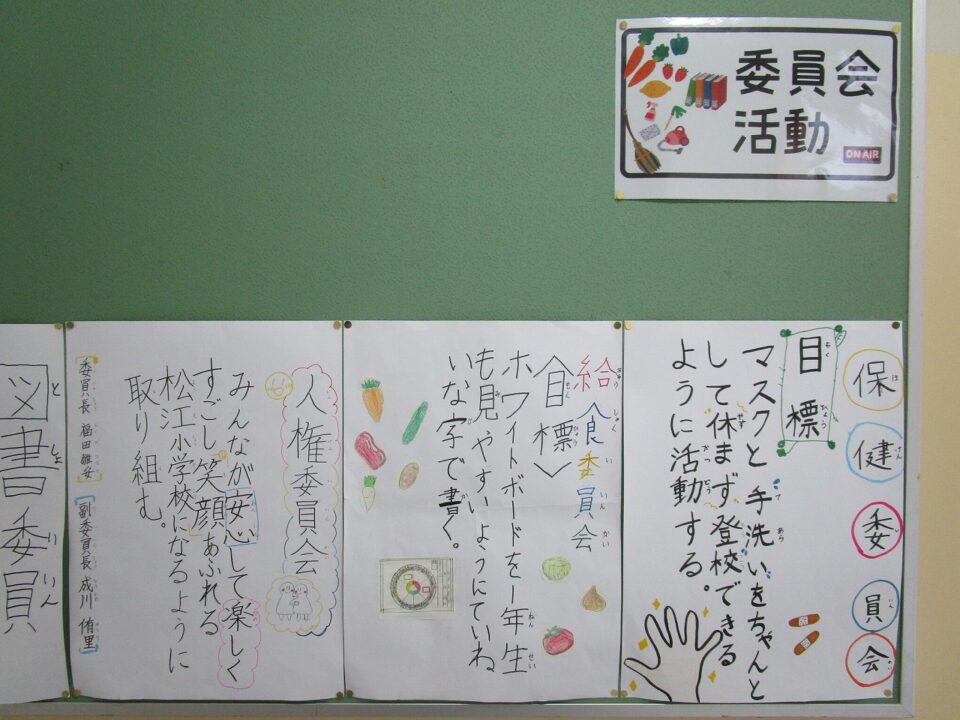 委員会
活動
ON AIR
保健委員会
目標
マスクと手洗いをちゃんと
して休まず登校できる
ように活動する。
給食委員会
〈目標〉
ホワイトボードを1年生
も見やすいようにていね
いな字で書く。
人権委員会
みんなが安心して楽しく
すごし笑顔あふれる
松江小学校になるように
取り組む。
委員長
副委員長 成川 侑里
図書委員